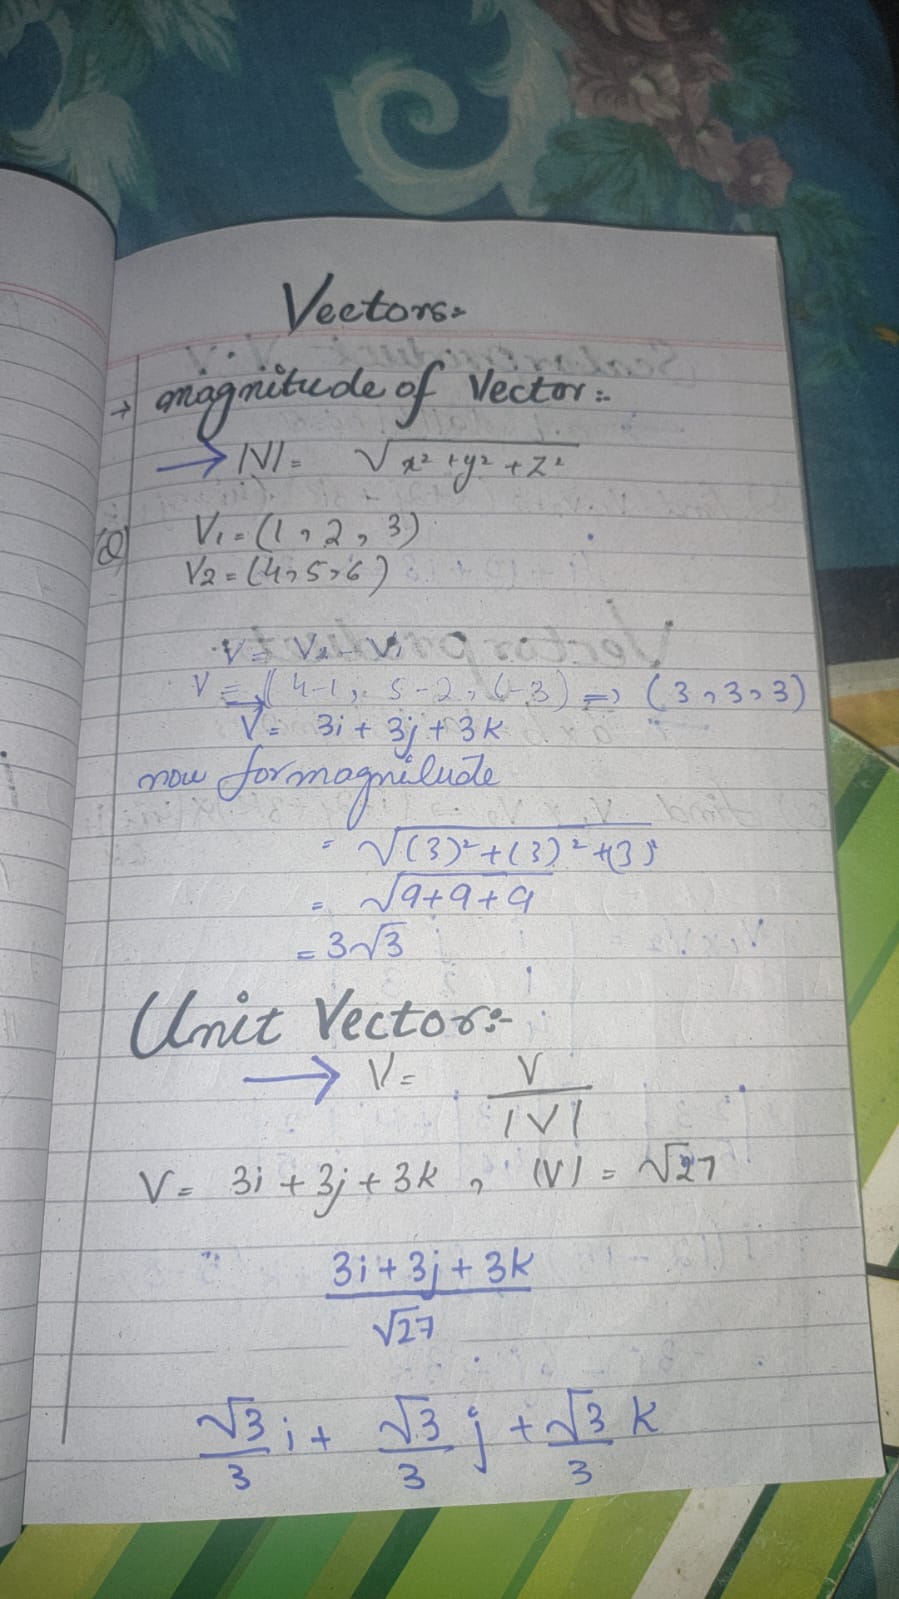 Vectors:-
→ magnitude of Vector:-
→ |V| = √x² + y² + z²
Q) V₁ = (1, 2, 3)
V₂ = (4, 5, 6)
V = V₂ - V₁
V = (4-1, 5-2, 6-3) => (3, 3, 3)
V = 3i + 3j + 3k
now for magnitude
= √(3)² + (3)² + (3)²
= √9+9+9
= 3√3
Unit Vector:-
→ V = V / |V|
V = 3i + 3j + 3k , |V| = √27
3i + 3j + 3k
√27
√3/3 i + √3/3 j + √3/3 k